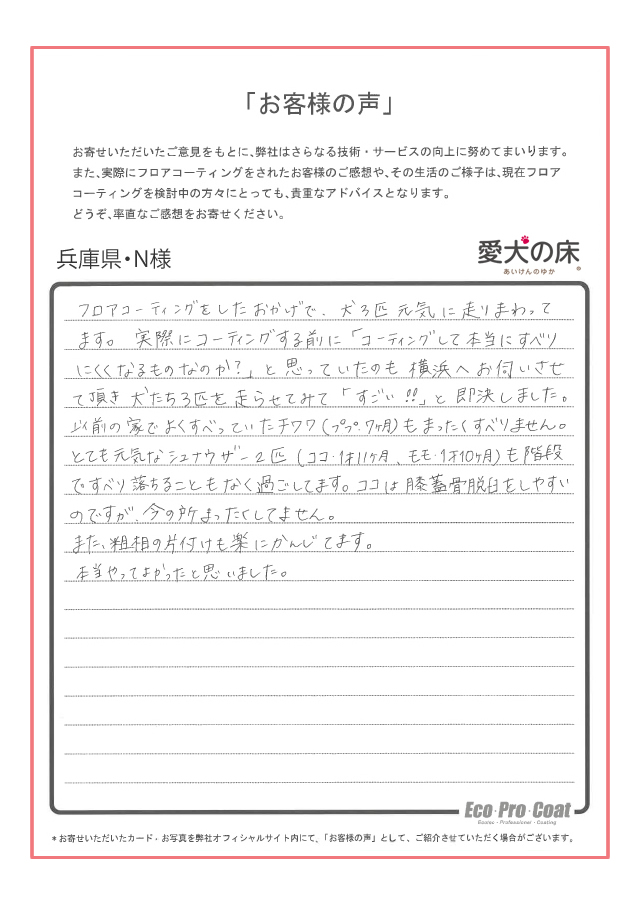 「お客様の声」
お寄せいただいたご意見をもとに、弊社はさらなる技術・サービスの向上に努めてまいります。
また、実際にフロアコーティングをされたお客様のご感想や、その生活のご様子は、現在フロア
コーティングを検討中の方々にとっても、貴重なアドバイスとなります。
どうぞ、率直なご感想をお寄せください。
兵庫県・N様
愛犬の床
あいけんのゆか
フロアコーティングをしたおかげで、犬3匹元気に走りまわって
ます。実際にコーティングする前に「コーティングして本当にすべり
にくくなるものなのか?」と思っていたのも横浜へお伺いさせ
て頂き犬たち3匹を走らせてみて「すごい!!」と即決しました。
以前の家でよくすべっていたチワワ(ププ・7ヶ月)もまったくすべりません。
とても元気なシュナウザー2匹(ココ・1才11ヶ月、モモ・1才10ヶ月)も階段
ですべり落ちることもなく過ごしてます。ココは膝蓋骨脱臼をしやすい
のですが、今の所まったくしてません。
また、粗相の片付けも楽にかんじてます。
本当やってよかったと思いました。
Eco・Pro・Coat
Ecomo・Professioner・Coating
*お寄せいただいたカード・お写真を弊社オフィシャルサイト内にて、「お客様の声」として、ご紹介させていただく場合がございます。